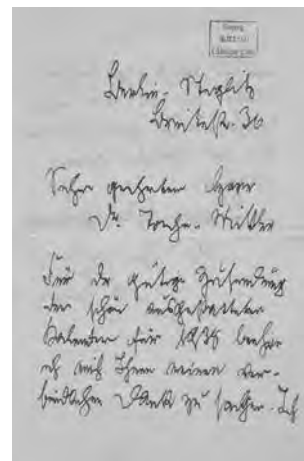 Berlin-Steglitz
Breitestr. 36
Sehr geehrter Herr
Dr. Toeche-Mittler
Für die gütige Zusendung
der schön ausgestatteten
Kalenders für 1935 beehre
ich mich Ihnen meinen ver-
bindlichsten Dank zu sagen. Ich